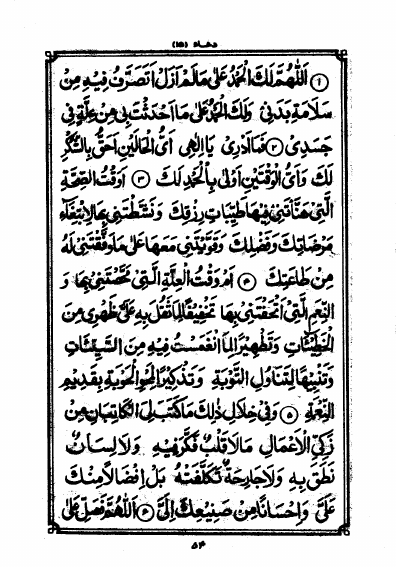 دعاء (١٥)
١ اَللّٰهُمَّ لَكَ الْحَمْدُ عَلىٰ مَا لَمْ اَزَلْ اَتَصَرَّفُ فِيهِ مِنْ
سَلَامَةِ بَدَنِي وَلَكَ الْحَمْدُ عَلىٰ مَا اَحْدَثْتَ بِي مِنْ عِلَّةٍ فِي
جَسَدِي ٢ فَمَا اَدْرِي يَا اِلٰهِي اَيُّ الْحَالَيْنِ اَحَقُّ بِالشُّكْرِ
لَكَ وَاَيُّ الْوَقْتَيْنِ اَوْلىٰ بِالْحَمْدِ لَكَ ٣ اَوَقْتُ الصِّحَّةِ
الَّتِي هَنَّأْتَنِي فِيهَا طَيِّبَاتِ رِزْقِكَ وَنَشَّطْتَنِي بِهَا لِابْتِغَاءِ
مَرْضَاتِكَ وَفَضْلِكَ وَقَوَّيْتَنِي مَعَهَا عَلىٰ مَا وَفَّقْتَنِي لَهُ
مِنْ طَاعَتِكَ ٤ اَمْ وَقْتُ الْعِلَّةِ الَّتِي مَحَّصْتَنِي بِهَا وَ
النِّعَمِ الَّتِي اَتْحَفْتَنِي بِهَا تَخْفِيفًا لِمَا ثَقُلَ بِهِ عَلىٰ ظَهْرِي مِنَ
الْخَطِيئَاتِ وَتَطْهِيرًا لِمَا انْغَمَسْتُ فِيهِ مِنَ السَّيِّئَاتِ
وَتَنْبِيهًا لِتَنَاوُلِ التَّوْبَةِ وَتَذْكِيرًا لِمَحْوِ الْحَوْبَةِ بِقَدِيمِ
النِّعْمَةِ ٥ وَفِي خِلَالِ ذٰلِكَ مَا كَتَبَ لِيَ الْكَاتِبَانِ مِنْ
زَكِيِّ الْاَعْمَالِ مَا لَا قَلْبٌ فَكَّرَ فِيهِ وَلَا لِسَانٌ
نَطَقَ بِهِ وَلَا جَارِحَةٌ تَكَلَّفَتْهُ بَلْ اِفْضَالًا مِنْكَ
عَلَيَّ وَاِحْسَانًا مِنْ صَنِيعِكَ اِلَيَّ ٦ اَللّٰهُمَّ فَصَلِّ عَلىٰ
٥٤